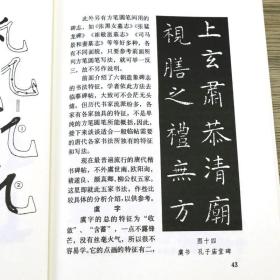 此外另有方笔圆笔间用的
碑志,如《张黑女墓志》《张猛
龙碑》《崔敬邕墓志》《司马
景和妻墓志》等等好多种,各
有各的不同。参照前面所例
方笔圆笔写法,就可举一反三,
故不另作说明。
前面介绍了六朝造象碑志
的书法特征,学者依此方法去
临摹碑帖,大致可不会茫无头
绪。但历代书家成就殊多,各
家有各家的特征,并不是单纯
的方笔圆笔所能概括,因此,
接下来谈谈适合一般临帖需要
的唐代各家书法所独有的特征
和写法。
现在最普遍流行的唐代楷
书碑帖,不外虞世南,欧阳询,
褚遂良,颜真卿,柳公权五家,
这里即就此五家书法,作些比
较具体的分析介绍,以供参考。
虞字
虞字的总的特征为“收
敛”、“含蓄”,一点不露锋
芒,没有丝毫火气,所以很不
容易学。它的点画的特征有二,
上玄肅恭清廟
視膳之禮無方
图十四
虞书 孔子庙堂碑
43